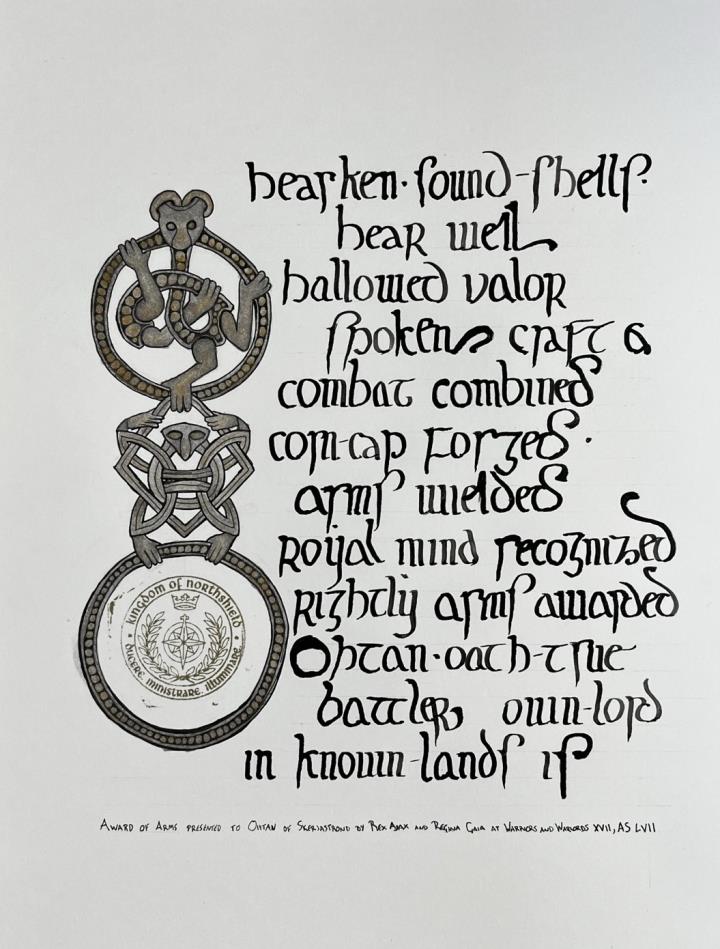 hearken·sound-shells·
hear well
hallowed valor
spoken craft &
combat combined
corn-cap forged·
arms wielded
royal mind recognized
rightly arms awarded
Ohtan·oath-true
battler, own-lord
in known-lands is
Kingdom of Northshield
Ducere, ministrare, illuminare
Award of Arms presented to Ohtan of Skerjastrond by Rex Ajax and Regina Gaia at Warriors and Warlords XVII, AS LVII